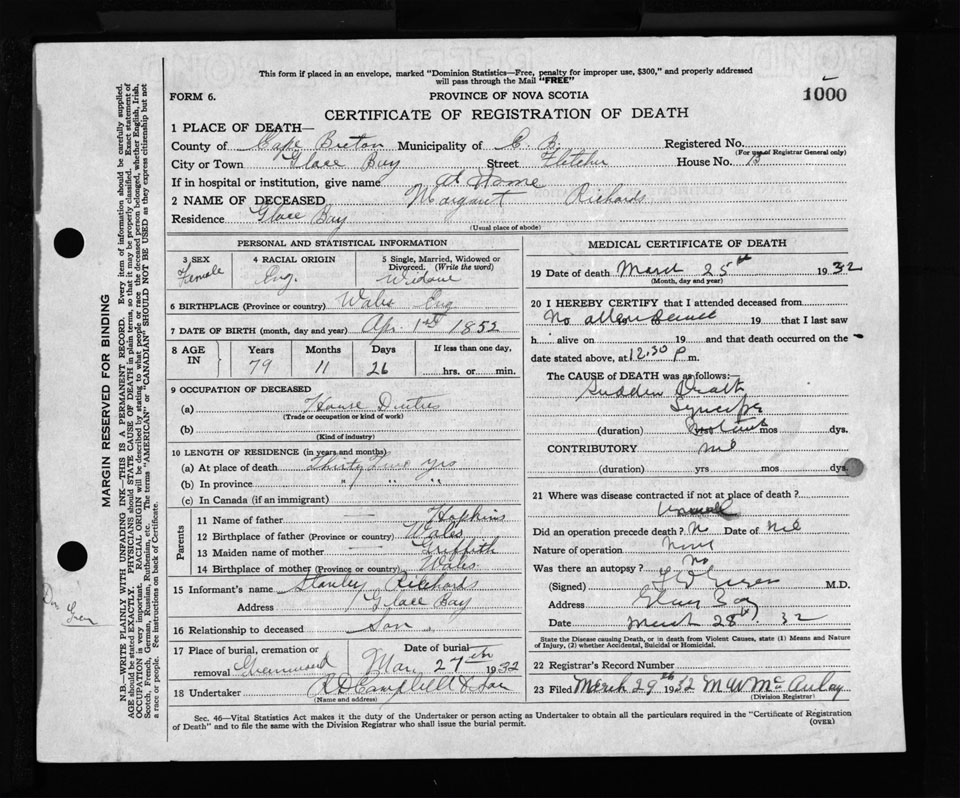 This form if placed in an envelope, marked "Dominion Statistics—Free, penalty for improper use, $300," and properly addressed
will pass through the Mail "FREE"
FORM 6.
PROVINCE OF NOVA SCOTIA
1000
CERTIFICATE OF REGISTRATION OF DEATH
1 PLACE OF DEATH—
County of Cape Breton Municipality of C. B. Registered No.
(For use of Registrar General only)
City or Town Glace Bay Street Fletcher House No.
If in hospital or institution, give name at Home
2 NAME OF DECEASED Margaret Richards
Residence Glace Bay
(Usual place of abode)
PERSONAL AND STATISTICAL INFORMATION
3 SEX
Female
4 RACIAL ORIGIN
Eng.
5 Single, Married, Widowed or
Divorced. (Write the word)
Widow
6 BIRTHPLACE (Province or country) Wales Eng
7 DATE OF BIRTH (month, day and year) Apr. 1st 1852
8 AGE
IN
Years
79
Months
11
Days
26
If less than one day,
hrs. or min.
9 OCCUPATION OF DECEASED
(a) House Duties
(Trade or occupation or kind of work)
(b)
(Kind of industry)
10 LENGTH OF RESIDENCE (in years and months)
(a) At place of death Thirty yrs
(b) In province " " "
(c) In Canada (if an immigrant)
Parents
11 Name of father — Hopkins
12 Birthplace of father (Province or country) Wales
13 Maiden name of mother — Griffith
14 Birthplace of mother (Province or country) Wales
15 Informant's name Stanley Richards
Address Glace Bay
16 Relationship to deceased Son
17 Place of burial, cremation or
removal Greenwood
Date of burial
Mar. 27th 1932
18 Undertaker R D Campbell & Son
(Name and address)
MEDICAL CERTIFICATE OF DEATH
19 Date of death March 25th 1932
(Month, day and year)
20 I HEREBY CERTIFY that I attended deceased from
No attendance 19 that I last saw
h alive on 19 and that death occurred on the
date stated above, at 12.30 P m.
The CAUSE of DEATH was as follows:—
Sudden Death
Syncope
(duration) yrs mos dys.
CONTRIBUTORY nil
(duration) yrs mos dys.
21 Where was disease contracted if not at place of death?
Did an operation precede death? No Date of nil
Nature of operation None
Was there an autopsy? No
(Signed) M.D.
Address Glace Bay
Date March 28th. 32
State the Disease causing Death, or in death from Violent Causes, state (1) Means and Nature
of Injury, (2) whether Accidental, Suicidal or Homicidal.
22 Registrar's Record Number
23 Filed March 29th 1932 M W McAulay
(Division Registrar)
Sec. 46—Vital Statistics Act makes it the duty of the Undertaker or person acting as Undertaker to obtain all the particulars required in the "Certificate of Registration
of Death" and to file the same with the Division Registrar who shall issue the burial permit.
(OVER)
MARGIN RESERVED FOR BINDING
N.B.—WRITE PLAINLY WITH UNFADING INK—THIS IS A PERMANENT RECORD. Every item of information should be carefully supplied.
AGE should be stated EXACTLY. PHYSICIANS should STATE CAUSE OF DEATH in plain terms, so that it may be properly classified. Exact statement of
OCCUPATION is very important. RACIAL ORIGIN will be described by stating to what people or race the deceased person belonged, whether English, Irish,
Scotch, French, German, Russian, Ruthenian, etc. The terms "AMERICAN" or "CANADIAN" SHOULD NOT BE USED as they express citizenship but not
a race or people. See instructions on back of Certificate.